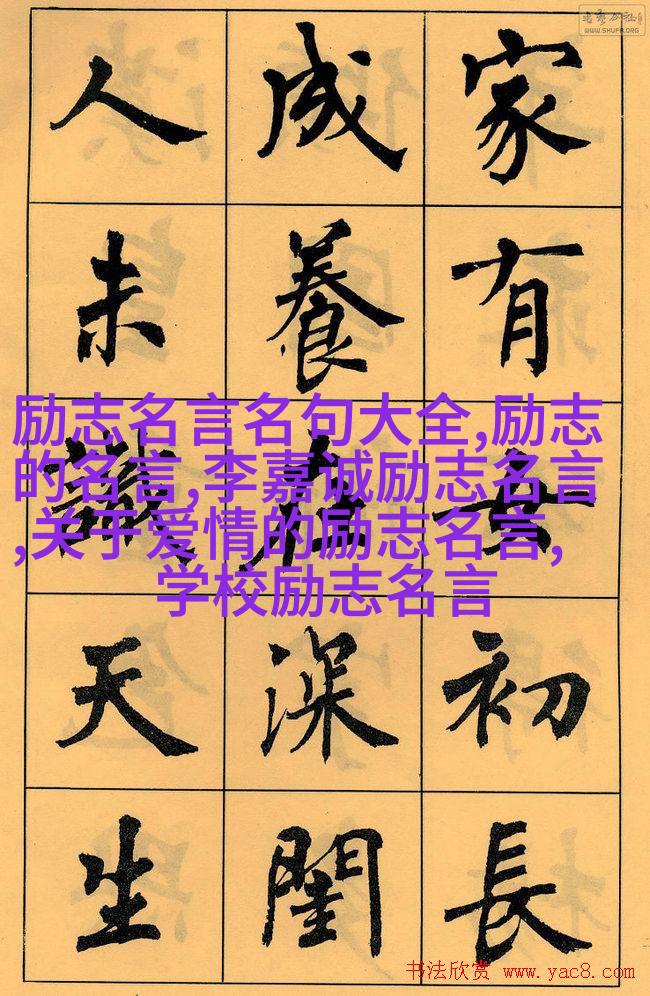 WWW.SHUFA.ORG
家有女初長
成養在深閨
人未識天生
励志名言名句大全,励志
的名言,李嘉诚励志名言
,关于爱情的励志名言,
学校励志名言
书法欣赏 www.yac8.com